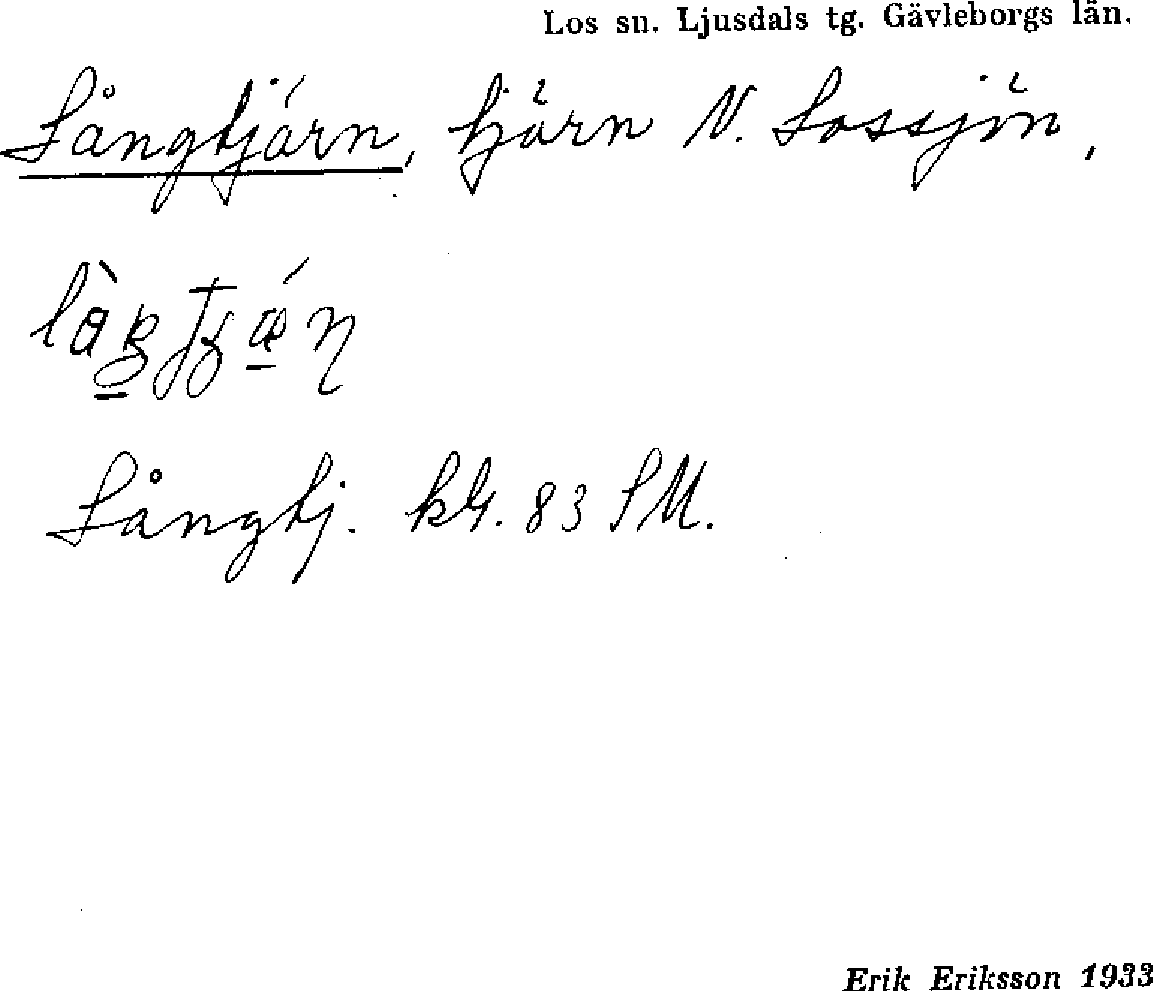 Los sn. Ljusdals tg. Gävleborgs län.
Långtjärn, tjärn N. Lossjön,
Långtj. kG. 83 SM.
Erik Eriksson 1933